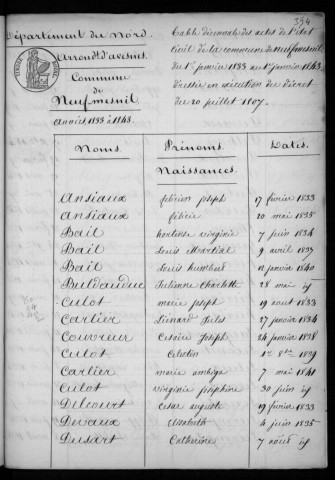 354
Département du Nord.
Arrondt d'avesnes
Commune
de
Neuf-mesnil
années 1833 à 1843.
Table décennale des actes de l'état
Civil de la commune de Neufmesnil
du 1er janvier 1833 au 1er janvier 1843,
Dressée en exécution du décret
du 20 juillet 1807.
Noms. Prénoms Dates.
Naissances.
Ansiaux félicien joseph 17 février 1833
ansiaux félicie 20 mai 1835
Bail hortense virginie 7 juin 1834
Bail Louis Martial 9 avril 1837
Bail Louis humbert 12 janvier 1840
julienne Charlotte 28 mai id
Culot marie joseph 19 aout 1833
Carlier Léonard jules 27 janvier 1834
Couvreur Césaire joseph 24 janvier 1838
Culot Célestin 1er 8bre 1839
Carlier marie 7 mai 1841
Culot virginie joséphine 30 juin id
Delcourt César auguste 19 février 1833
Devaux Elisabeth 4 juin 1835
Dusart Catherine 7 aout id